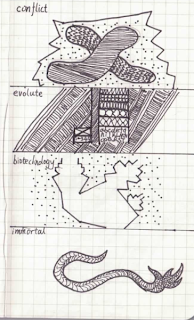 conflict
evolute
biotechnology
immortal